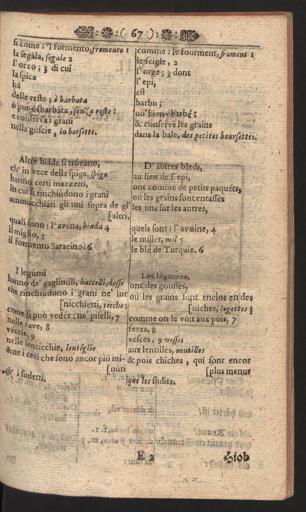 ( 67 )
si come: 'l formento, fromento 1
la segala, segale 2
l'orzo; 3 di cui
la spica
hà
delle reste; ò barbata
o pur è sbarbata, senza reste:
e conserva i grani
nella guscie, in borsette.
Altre biade si trovano,
ch' in vece della spiga, spigo
hanno certi mazzetti,
in cui si rinchiudono i grani
ammucchiati gli uni sopra de gl'
[altri,
quali sono: l'avena, biada 4
il miglio, 5
il formento Saracino. 6
I legumi
hanno de' gagliuoli, baccelli, dosse
che rinchiudono i grani ne' lor
[nicchietti, tecche;
come si può veder: ne' piselli; 7
nelle fave, 8
veccie, 9
nelle lenticchie, lentiglie
& ne i ceci che sono ancor più mi-
[nuti
de' i sudetti.
comme: le fourment, froment 1
le seigle, 2
l'orge; 3 dont
l'epi,
est
barbu;
où bien ébarbé:
& conserve les grains
dans la bale, des petites boursettes.
D'autres bleds,
au lieu de l'epi,
ont comme de petits paquets,
ou les grains sont entassés
les uns sur les autres,
quels sont: l'avoine, 4
le millet, mil 5
le blé de Turquie. 6
Les legumes,
ont des gousses,
où les grains sont enclos en des
[niches, logettes;
comme on le voit aux pois, 7
féves, 8
vesces, 9 vesses
aux lentilles, nentilles
& pois chiches, qui sont encor
[plus menus
que les susdits.
E 2
Hiob